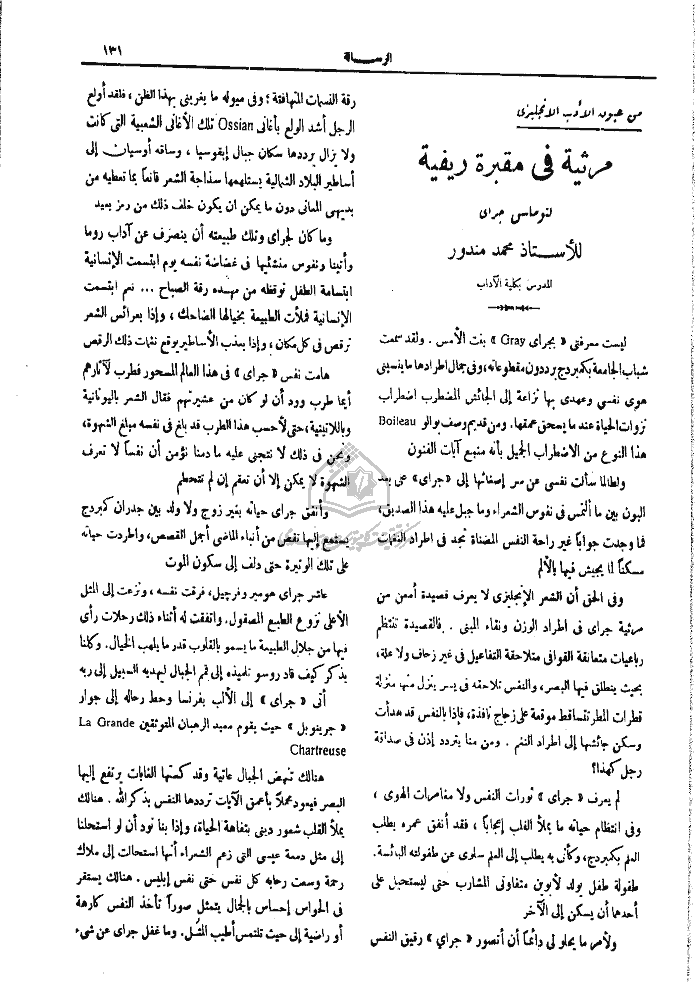 ١٣١
الرسالة
من عيون الأدب الانجليزى
مرثية فى مقبرة ريفية
لتوماس جراى
للأستاذ محمد مندور
المدرس بكلية الآداب
ليست معرفتى « بجراى Gray » بنت الأمس . ولقد سمعت
شباب الجامعة بكمبردج يرددون مقطوعاته، وفى جمال اطرادها ما ينسينى
هوى نفسى وعهدى بها نزاعة إلى الجائش المضطرب اضطراب
نزوات الحياة عند ما يسحق عمقها. ومن قديم وصف بوالو Boileau
هذا النوع من الاضطراب الجميل بأنه منبع آيات الفنون
ولطالما سألت نفسى عن سر إصغائها إلى « جراى » على بعد
البون بين ما ألتمس فى نفوس الشعراء وما جبل عليه هذا الصديق،
فما وجدت جواباً غير راحة النفس المضناة تجد فى اطراد النغمات
مسكناً لما يجيش فيها بالألم
وفى الحق أن الشعر الإنجليزى لا يعرف قصيدة أمعن من
مرثية جراى فى اطراد الوزن ونقاء المبنى . فالقصيدة تنتظم
رباعيات متعانقة القوافى متلاحقة التفاعيل فى غير زحاف ولا علة،
بحيث ينطلق فيها البصر، والنفس تلاحقه فى يسر ينزل منها منزلة
قطرات المطر تتساقط موقعة على زجاج نافذة، فإذا بالنفس قد هدأت
وسكن جائشها إلى اطراد النغم . ومن منا يتردد إذن فى صداقة
رجل كهذا؟
لم يعرف « جراى » ثورات النفس ولا مغامرات الهوى ،
وفى انتظام حياته ما يملأ القلب إعجاباً ، فقد أنفق عمره يطلب
العلم بكمبردج، وكأنى به يطلب إلى العلم سلوى عن طفولته البائسة.
طفولة طفل يولد لأبوين متفاوتى المشارب حتى ليستحيل على
أحدها أن يسكن إلى الآخر
ولأمر ما يحلو لى دائماً أن أتصور « جراي » رقيق النفس
رقة النسمات المتهافتة ؛ وفى ميوله ما يغرينى بهذا الظن ، فلقد أولع
الرجل أشد الولع بأغانى Ossian تلك الأغانى الشعبية التى كانت
ولا تزال يرددها سكان جبال إيقوسيا ، وساقه أوسيان إلى
أساطير البلاد الشمالية يستلهمها سذاجة الشعر قانعاً بما تعطيه من
بديهى المعانى دون ما يمكن ان يكون خلف ذلك من رمز بعيد
وما كان لجراى وتلك طبيعته أن ينصرف عن آداب روما
وأتينا ونفوس منشئيها فى غضاضة نفسه يوم ابتسمت الإنسانية
ابتسامة الطفل توقظه من مهده رقة الصباح ... نعم ابتسمت
الإنسانية فملأت الطبيعة بخيالها الضاحك ، وإذا بعرائس الشعر
ترقص فى كل مكان ، وإذا بعذب الأساطير يوقع نغمات ذلك الرقص
هامت نفس « جراى » فى هذا العالم المسحور فطرب لآثارهم
أيما طرب وود أن لو كان من عشيرتهم فقال الشعر باليونانية
وباللاتينية، حتى لأحسب هذا الطرب قد بلغ فى نفسه مبلغ الشهوة،
ونحن فى ذلك لا نتجنى عليه ما دمنا نؤمن أن نفساً لا تعرف
الشهوة لا يمكن إلا أن تعقم إن لم تتحطم
وأنفق جراى حياته بغير زوج ولا ولد بين جدران كمبردج
يستمع إليها تقص من أنباء الماضى أجمل القصص، واطردت حياته
على تلك الوتيرة حتى دلف إلى سكون الموت
عاشر جراى هومير وفرچيل، فرقت نفسه ، ونزعت إلى المثل
الأعلى نزوع الطبع المصقول. واتفقت له أثناء ذلك رحلات رأى
فيها من جلال الطبيعة ما يسمو بالقلوب قدر ما يلهب الخيال. وكلنا
يذكر كيف قاد روسو تلميذه إلى قم الجبال ليهديه السبيل إلى ربه
أتى « جراى » إلى الألب بفرنسا وحط رحاله إلى جوار
« جرينوبل » حيث يقوم معبد الرهبان المتوثقين La Grande
Chartreuse
هنالك تنهض الجبال عاتية وقد كستها الغابات يرتفع إليها
البصر فيعود محملاً بأعمق الآيات ترددها النفس بذكر الله . هنالك
يملأ القلب شعور دينى بتفاهة الحياة، وإذا بنا نود أن لو استحلنا
إلى مثل دمعة عيسى التى زعم الشعراء أنها استحالت إلى ملاك
رحمة وسعت رحابه كل نفس حتى نفس إبليس . هنالك يستقر
فى الحواس إحساس بالجمال يتمثل صوراً تأخذ النفس كارهة
أو راضية إلى حيث تلتمس أطيب المُثل. وما غفل جراى عن شىء